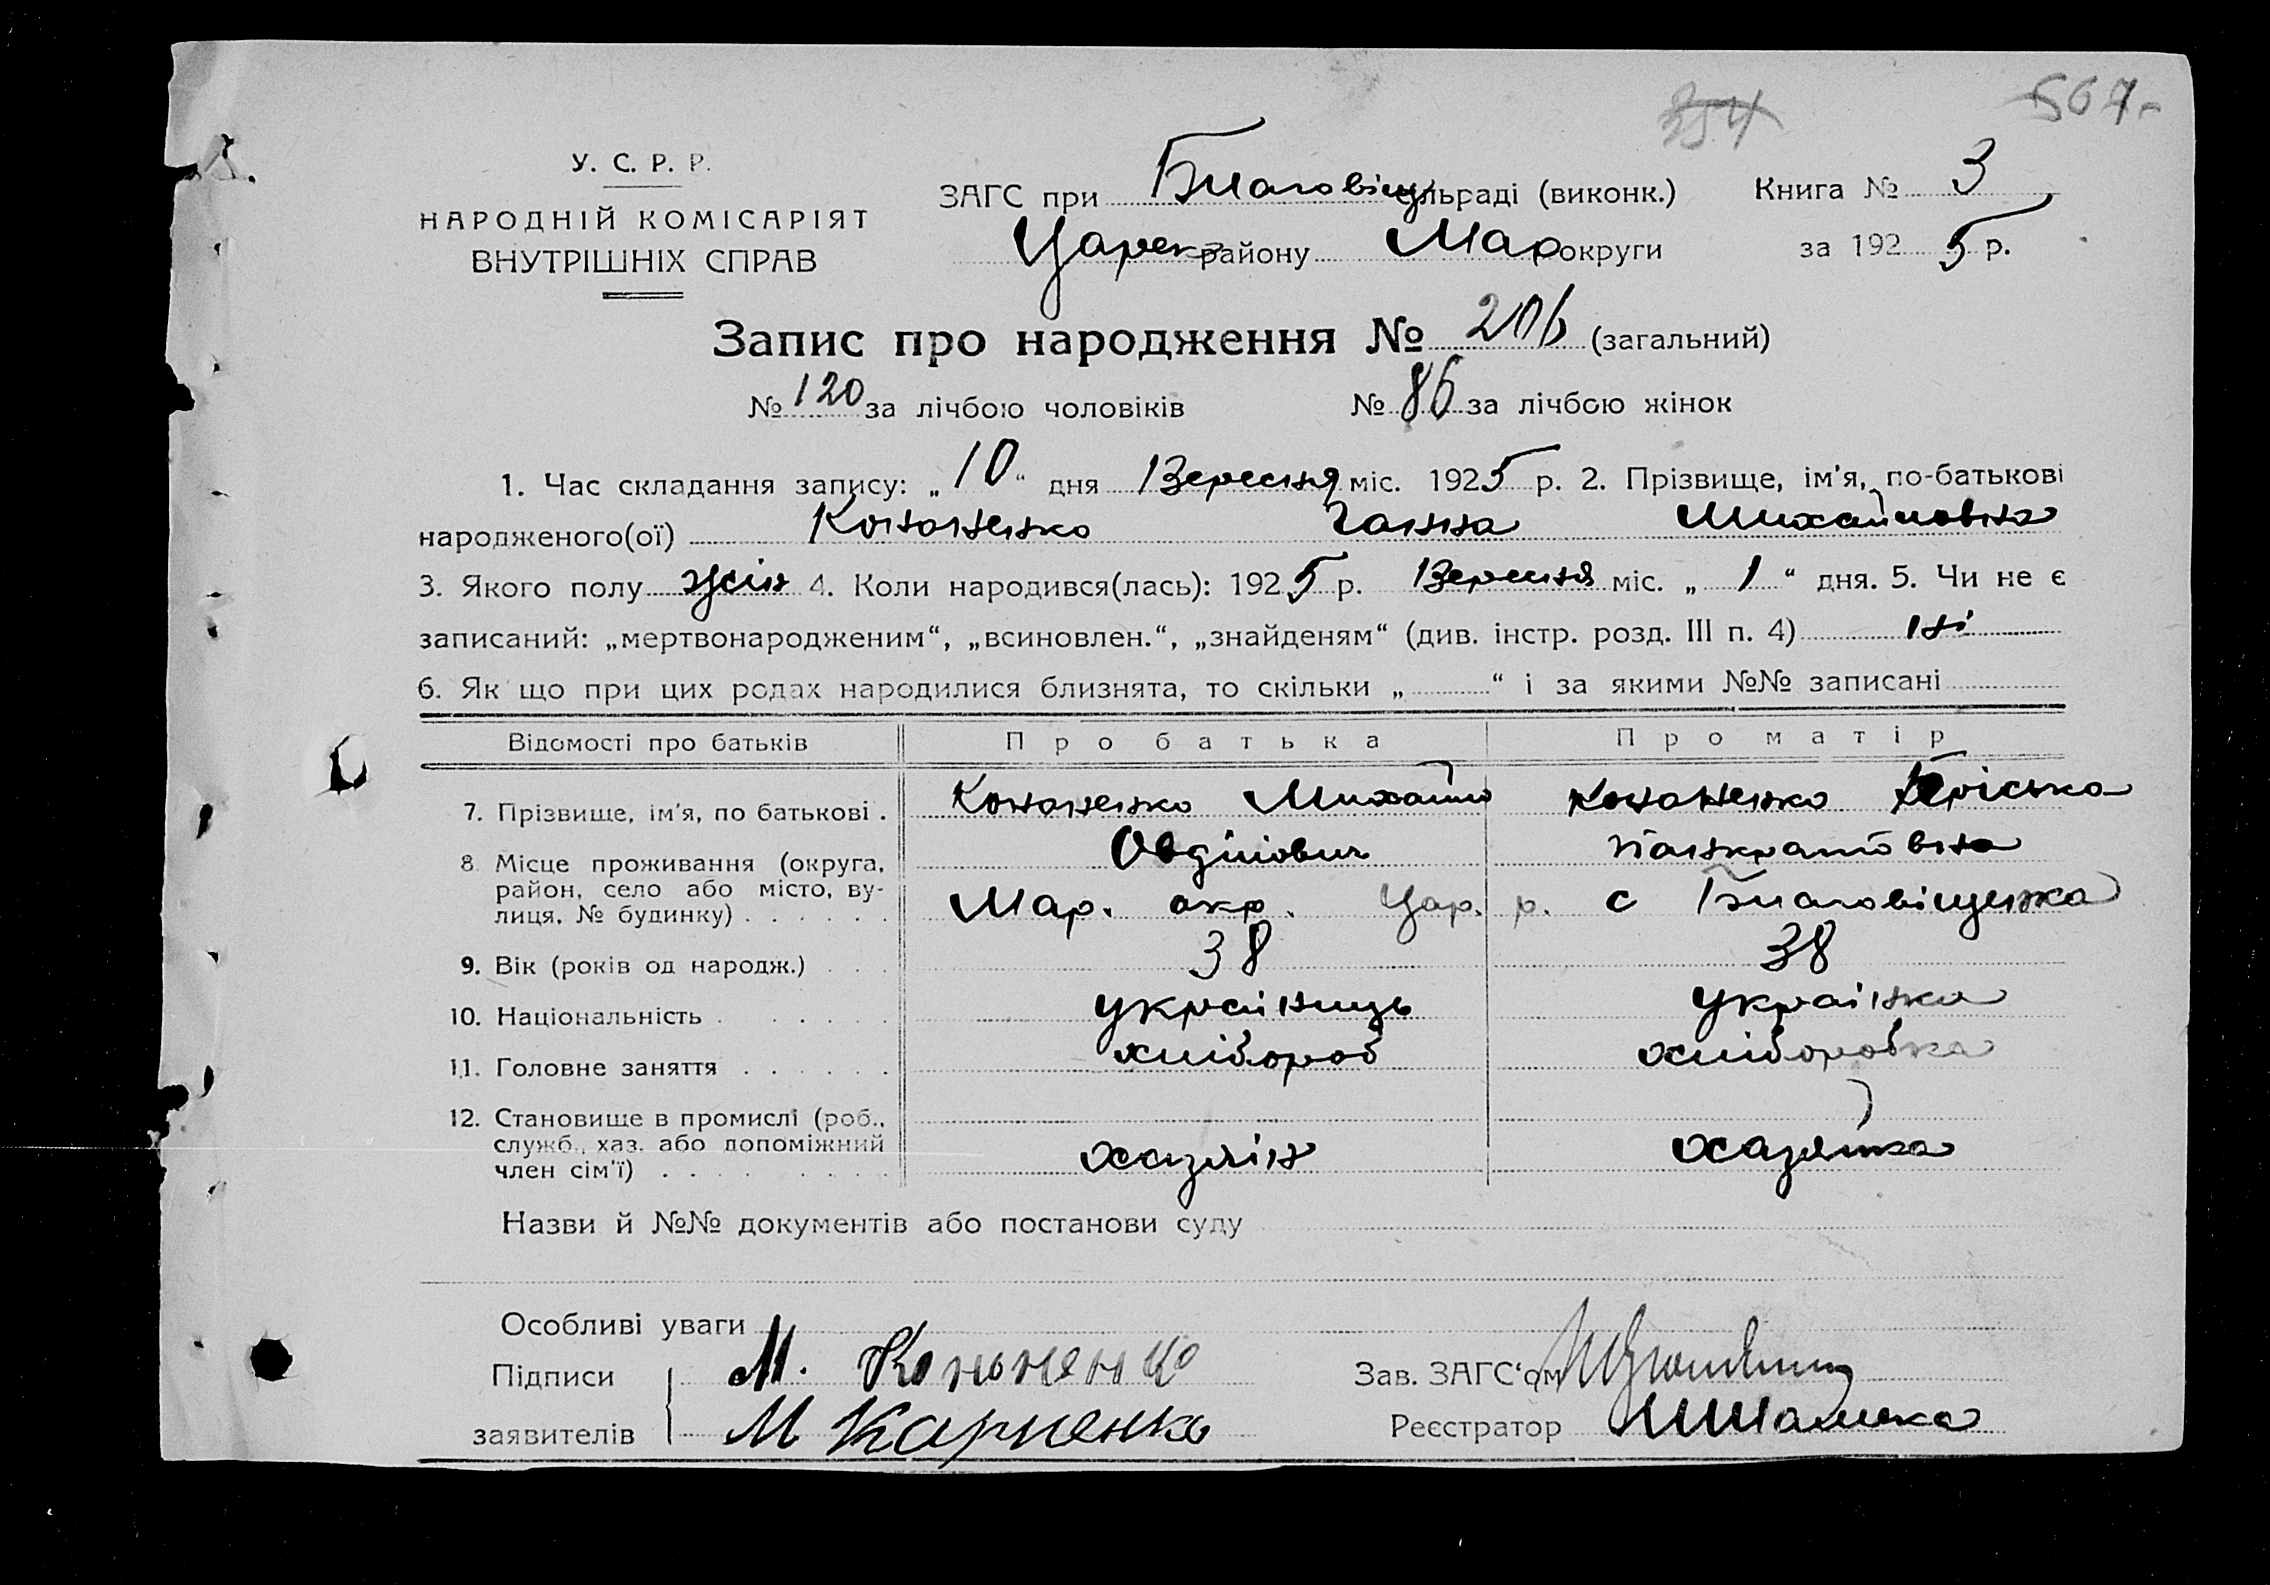 354 567
У. С. Р. Р.
НАРОДНІЙ КОМІСАРІЯТ
ВНУТРІШНІХ СПРАВ
ЗАГС при Благовіщ сільраді (виконк.) Книга № 3
Царек району Мар округи за 1925 р.
Запис про народження № 206 (загальний)
№ 120 за лічбою чоловіків № 86 за лічбою жінок
1. Час складання запису: „10“ дня Вересня міс. 1925 р. 2. Прізвище, ім'я, по-батькові
народженого(ої) Кононенко Ганна Михайловна
3. Якого полу жін 4. Коли народився(лась): 1925 р. Вересня міс. „1“ дня. 5. Чи не є
записаний: „мертвонародженим“, „всиновлен.“, „знайденям“ (див. інстр. розд. III п. 4) ні
6. Як що при цих родах народилися близнята, то скільки „ “ і за якими №№ записані
Відомості про батьків Про батька Про матір
7. Прізвище, ім'я, по батькові . Кононенко Михайло Кононенко Пріська
Овдійович Панкратовна
8. Місце проживання (округа,
район, село або місто, ву-
лиця, № будинку) . . . . . . Мар. окр. Цар. р. с Благовіщенка
9. Вік (років од народж.) . . . 38 38
10. Національність . . . . . українець українка
11. Головне заняття . . . . . . хлібороб хліборобка
12. Становище в промислі (роб.,
служб., хаз. або допоміжний
член сім'ї) . . . . . . . . хазяїн хазяйка
Назви й №№ документів або постанови суду
Особливі уваги
Підписи М. Кононенко Зав. ЗАГС'ом
заявителів М Карпенко Реєстратор